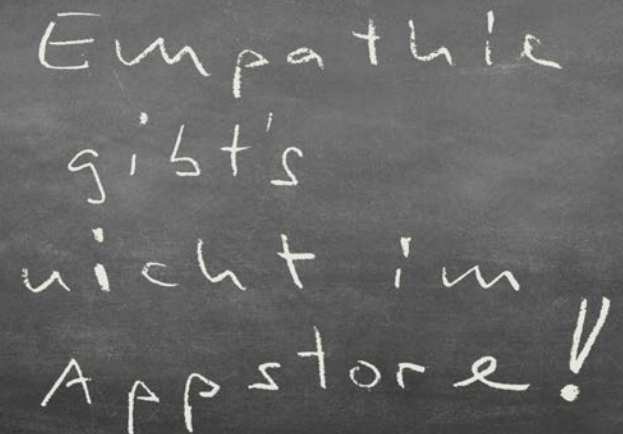 Empathie
gibt's
nicht im
Appstore!